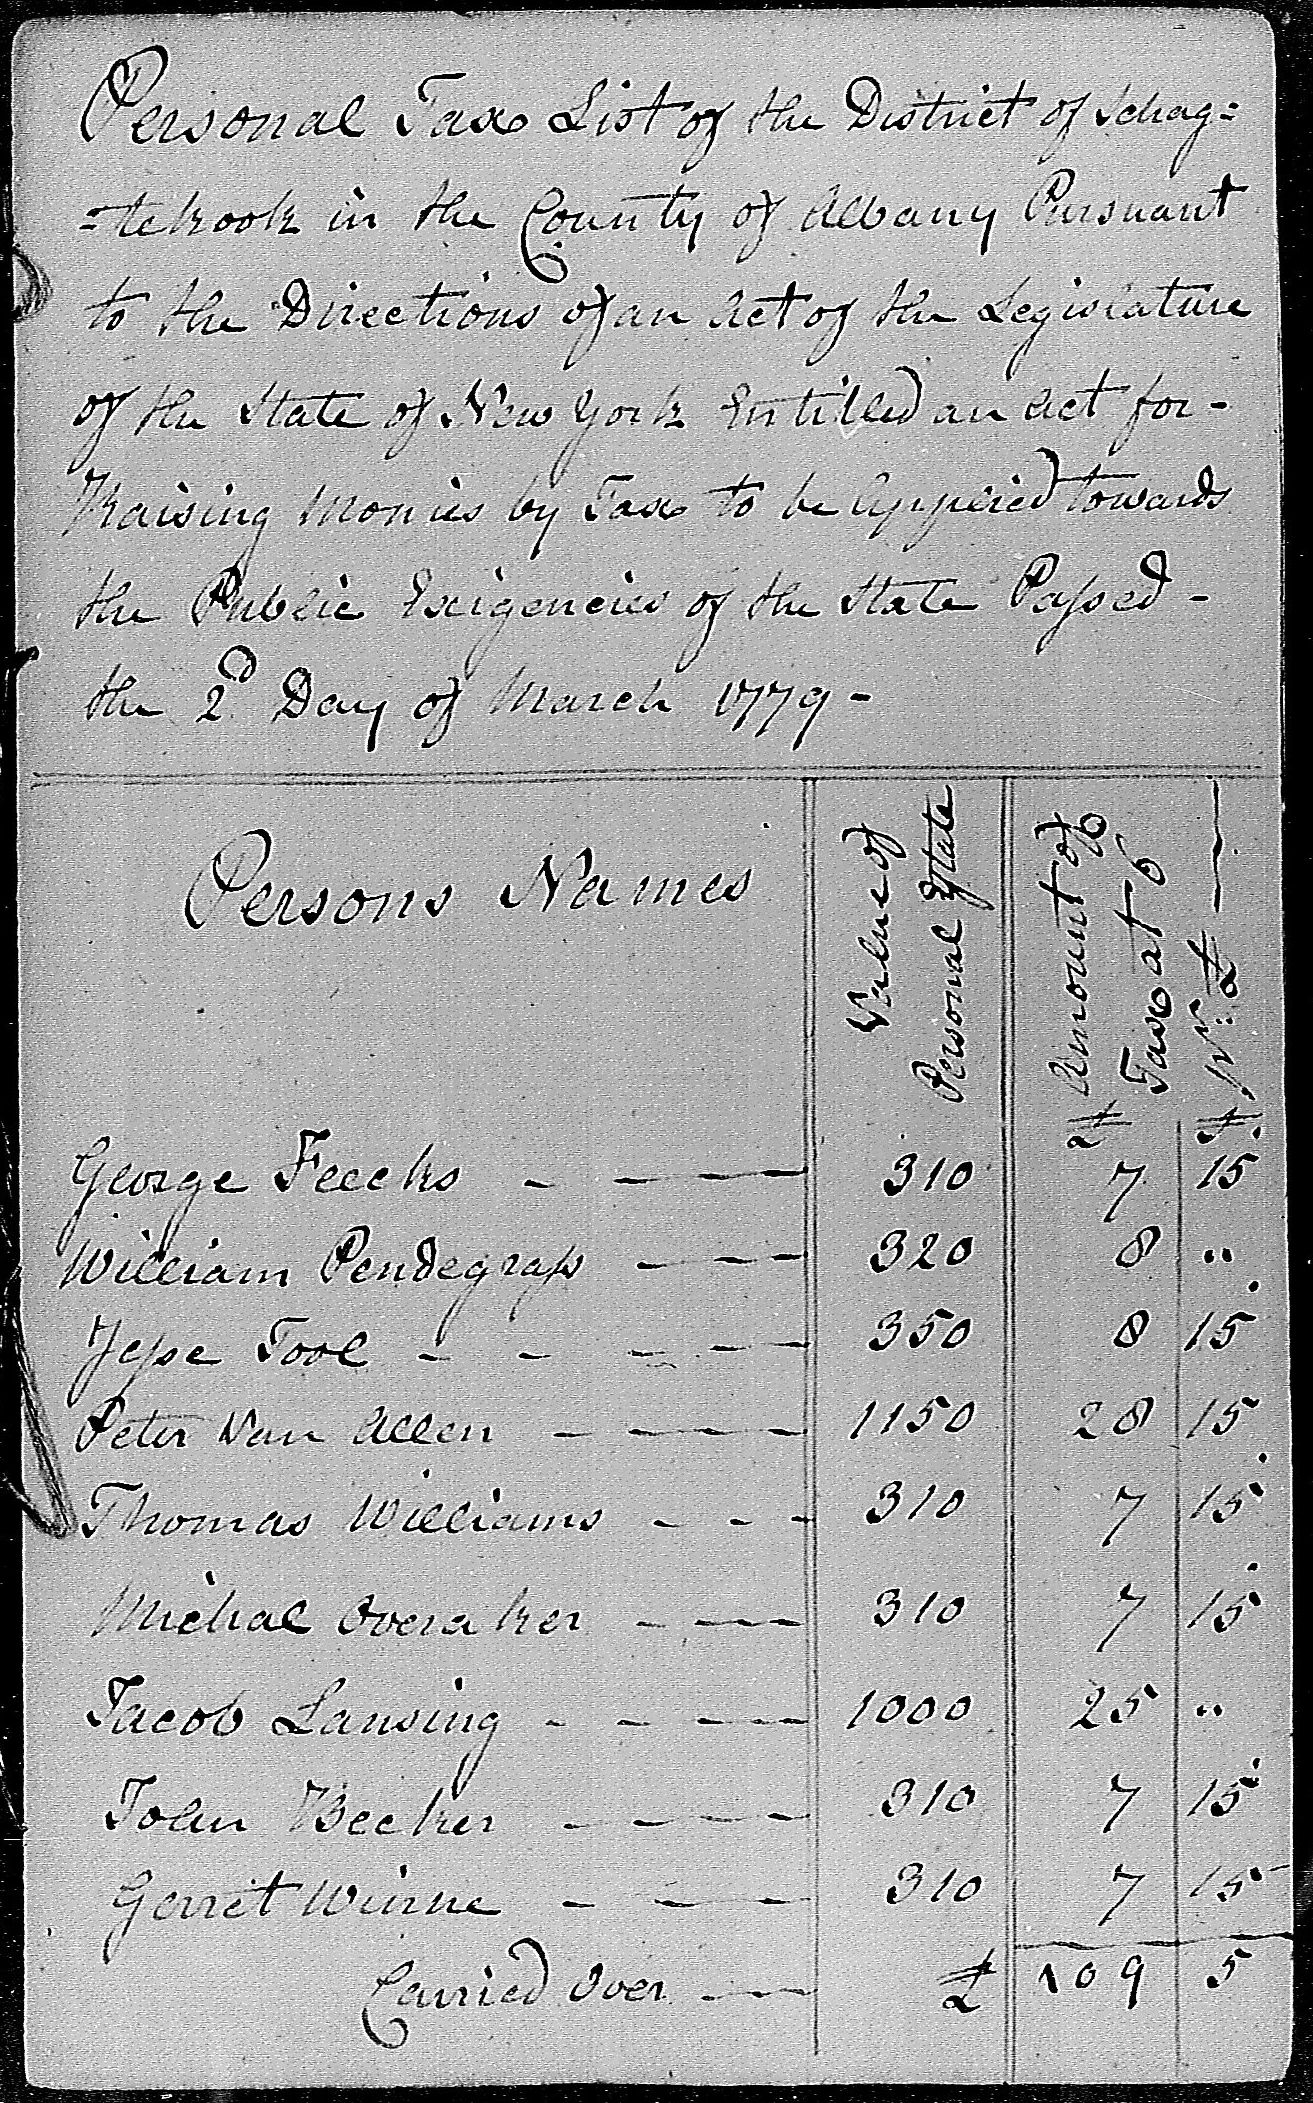 Personal Tax List of the District of Schag=
=tekook in the County of Albany Pursuant
to the Directions of an Act of the Legislature
of the State of New York Entitled an Act for -
Raising Monies by Tax to be Applied towards
the Public Exigencies of the State Passed -
the 2d Day of March 1779 -
Persons Names
Value of
Personal Estate
Amount of
Tax at 6
pr. £
£ s.
George Feecks - - — — 310 7 15
William Pendegrass - — — 320 8 "
Jesse Tool - - - - — 350 8 15
Peter Van Allen - - - - 1150 28 15
Thomas Williams - - - 310 7 15
Michal Overaker - — — 310 7 15
Jacob Lansing - - — — 1000 25 "
John Becker - - — — 310 7 15
Gerret Winne - — — 310 7 15
Carried Over — £ 109 5